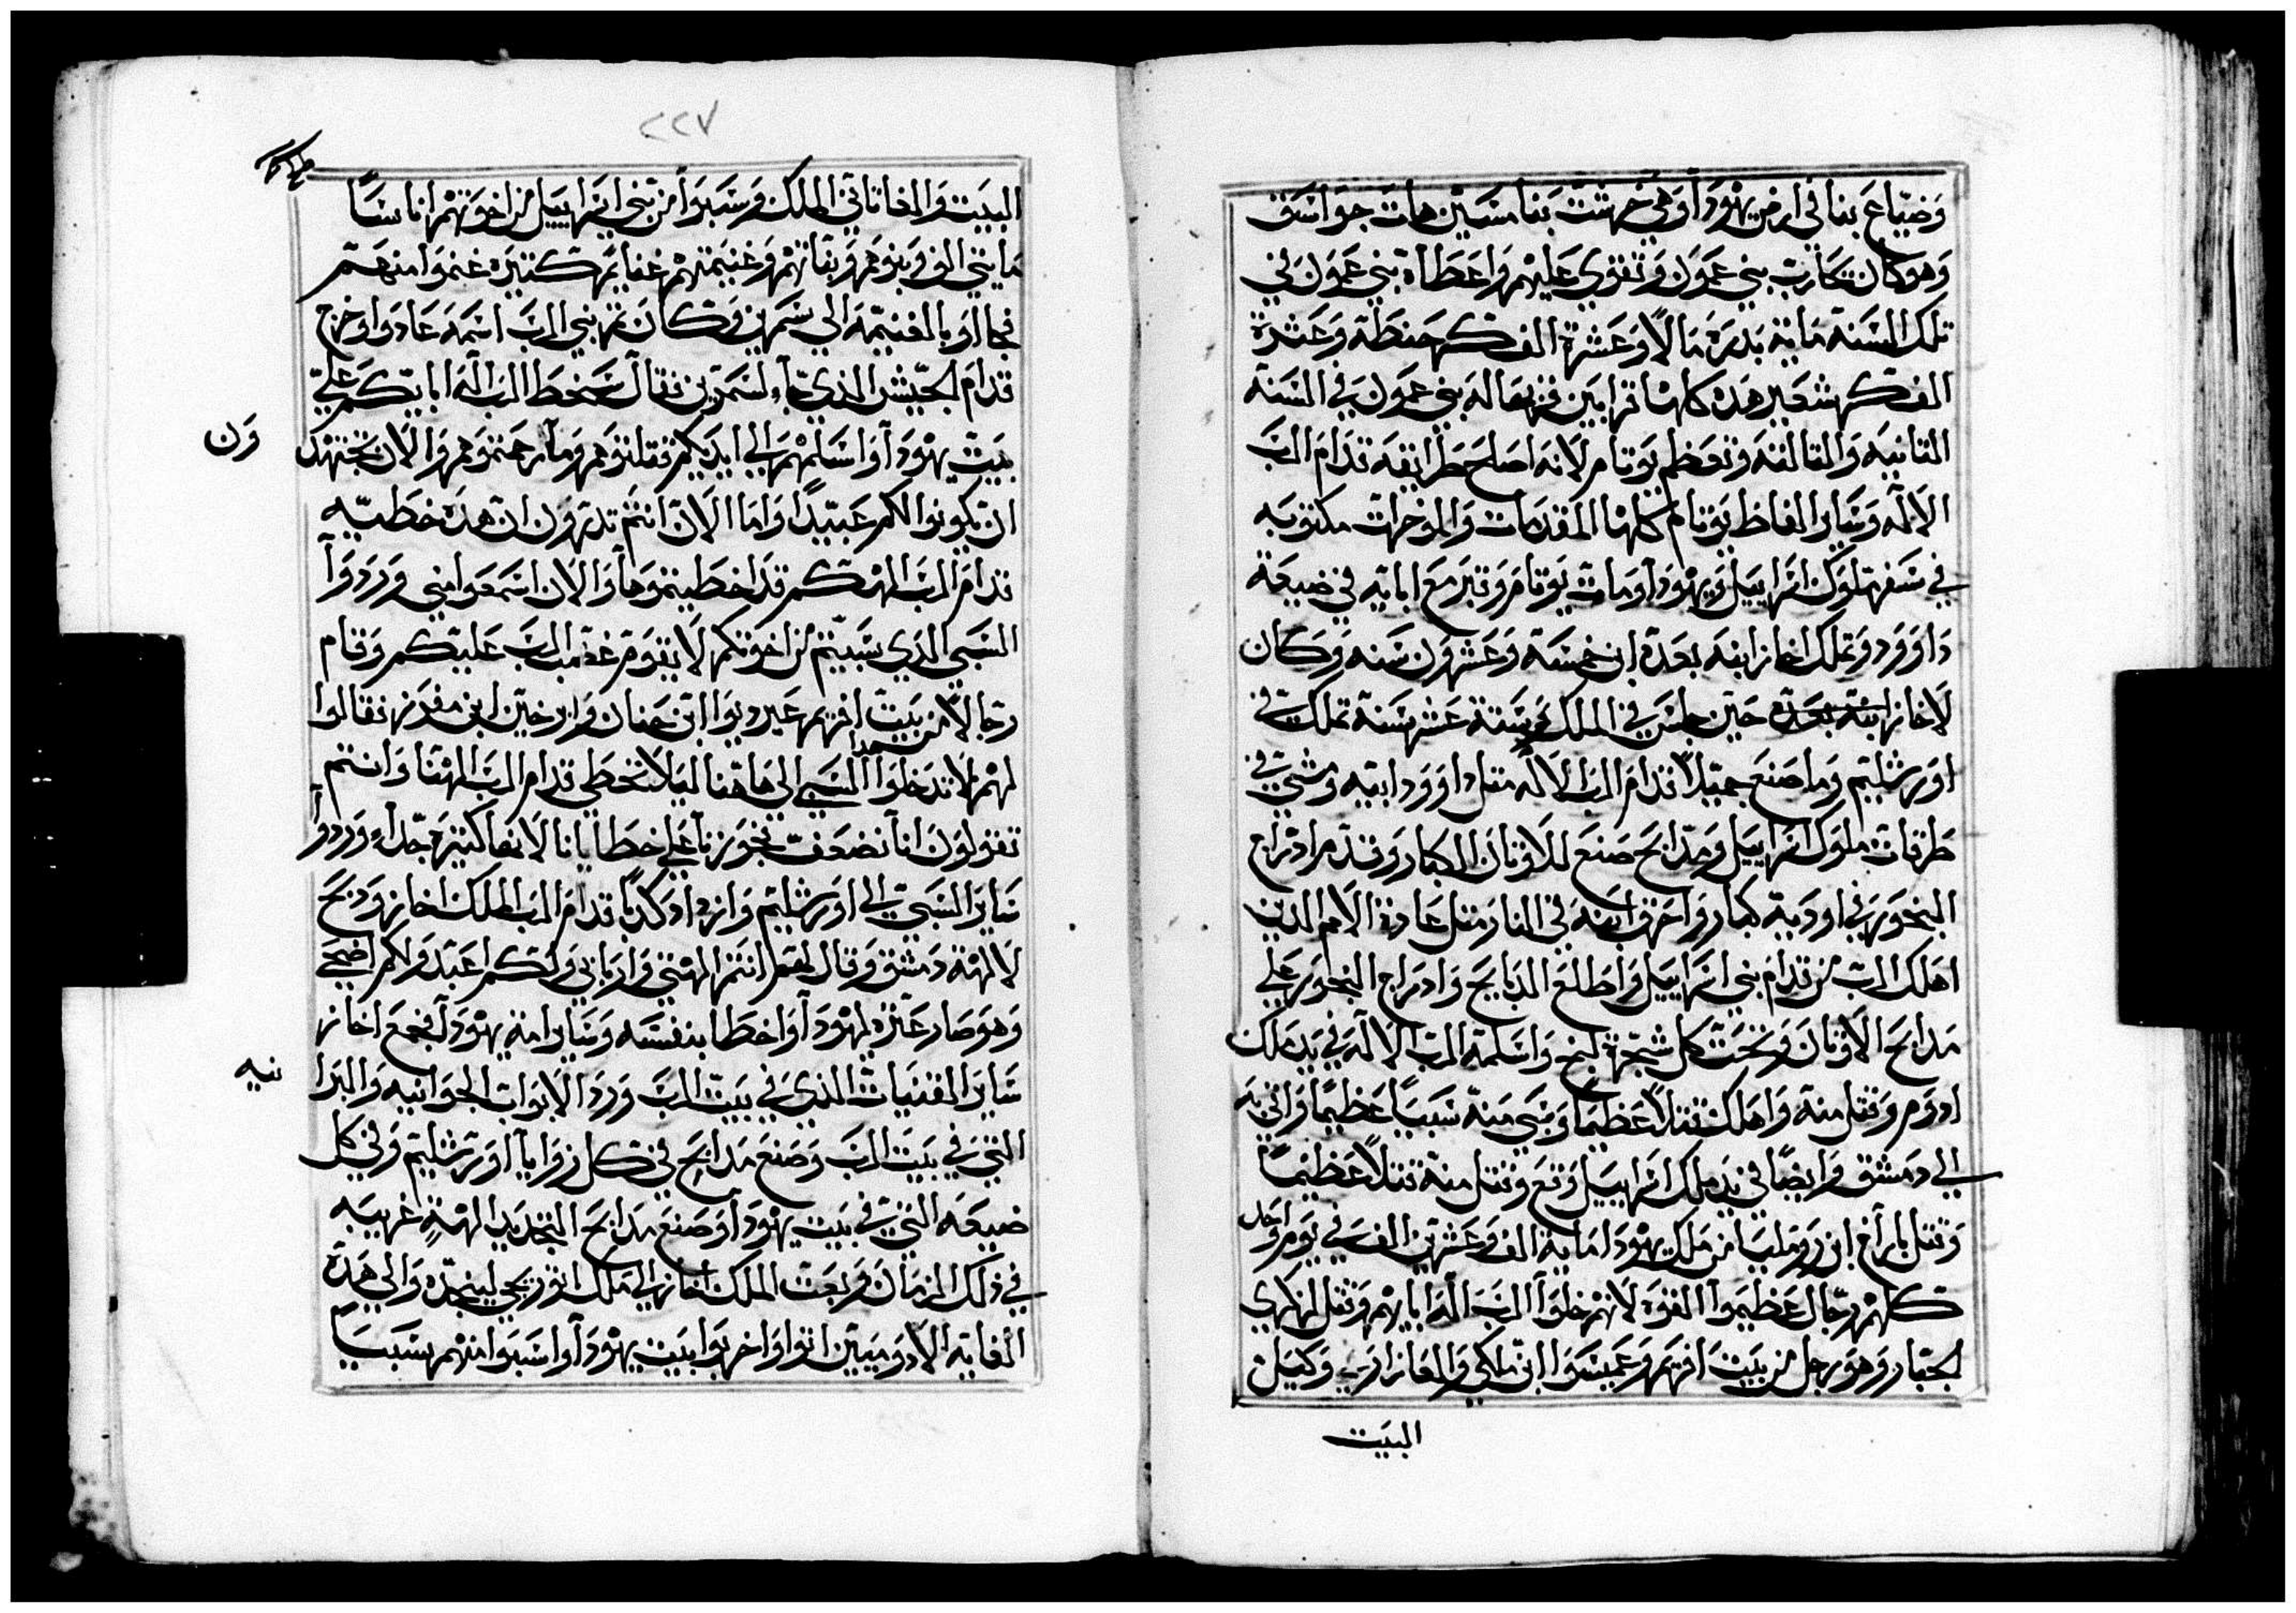 وَضيّاع بنا في ارض يهْودَا وَفي خرشت بَنا مسَين هات جوَاسَق
وَهو كان يحَارب بني عمَون وَتقوي عَليهم وَاعَطَاه بني عموَن في
تلك السَنة مَاية بَدرة مَالاً وَعَشرة الف كر حنطَة وَعَشرة
الف كر شعَير هَده كلها ترابَين فزيعَا له بني عموَن في السَنة
التانيه وَالتالتة وَتعَظم يوَتام لانه اصلح طَرايقه قدَام الرَب
الالَه وَسَاير الفاظ يوَتام كلها المقدمات وَالموخرات مكتوبه
في سَفر ملوَك اسَراييل وَيهْودَا وَمات يوَتام وَقبرَ مَع ابايه في ضيعَة
دَاوَود وَتملك اخاز ابنه بعَده ابن خمسَة وَعَشروَن سَنه وَكان
لاخاز ابنه بعَده حَين جلسَ في الملك وَستة عَشر سَنة تملك في
اوَرشليَم وَما صَنعَ جميلاً قدَام الرب الالَه متل داوَود ابيه وَمشي في
طَرقات ملوَك اسَراييل وَمدَابح صَنعَ للاوَتان الكبار وَقدم ادراج
البخوَر في اوديَة كبار وَاحَرق ابنه في النار متل عَادة الامم الدين
اهلك الرب من قدام بني اسَراييل وَاطلعَ الدبايح وَادراج البخور علي
مَدابح الاوتان وَتحَت كل شجرة لبخ وَاسَلمه الرب الالَه في يد ملك
ادوَم وَقتل منه وَاهلك قتلاً عَظيماً وَسَبي منه سَبياً عَظيماً وَاتي به
الي دمَشق وَايضاً في يد ملك اسَراييل وَقعَ وَقتل منه قتلاً عَظيماً
وَقتل باراخ ابن روَمليا من ملك يهْودَا ماية الف وَعَشرين الف في يوم وَاحد
كلهم رجال عَظيموا القوَه لانهم خلوَا الرب الَه ابايهم وَقتل لزكري
الجبار وَهو رجل من بيَت افريم وَعَميسَوا ابن ملكي وَالعَازار وَكيل
البيَت
٢٢٧
البيَت وَالغاناتاني الملك وَسَبوَا من بَني اسَراييل من اخوَتهم اناسَاً
مَايتي الف وَبنوهم وَبنَاتهم وَغنيمتهم غنايم كتيرَه غنموَا منهم
فجااوَا بالغنيمَه الي سَمرين وَكان تم نبي الرب اسمه عَادوَا وَخرج
قدَام الجَيش الذي جاء لسَمرين فقال سَخط الرب الَه ابايكم علي
بيَت يهْودَا وَاسَلمهم الي ايديكم فقتلتوهم وَمَا رحمتوهم وَالان تجتهد
وَن
ان يكونوا لكم عَبيداً وَاما الان انتم تدروَن ان هَدة خطَيه
قدام الرب الهكم قد اخطَيتموَها وَالان اسَمعَوا مني وَردوَا
السَبي الذي سَبيتم من اخوتكم لا يقوَم غضب الرب عَليكم وَقام
رجالاً من بيَت افريم عَيردوَا ابن حَنان وَبارخين ابن مفدرنه فقالوا
لهم لا تدخلوَا السَبي الي هَاهنا ليَلا نخطَي قدام الرب الهنا وَانتم
تقولون انا نضعَف تجوَزنا علي خطَايانا لانها كتيرَه جداً وَردوا
سَاير السَبي الي اوَرشليم وَازداد كدباً قدام الرب الملك اخاز وَدبح
لالهة دمشق وَقال لهم انتم الهتي وَاربابي وَلكم اعبَد وَلكم اضحي
وَهو صَار عَتره ليهْودَا وَاخطَا بنفسَه وَسَاير امة يهودَا فجمعَ اخاز
سَاير القنيات الذي في بيَت الرب وَرد الابوَاب الجوَانيه وَالبرا
نيه
التي في بيَت الرب وَصَنع مَدابح في كل زوَايا اوَرشليَم وَفي كل
ضيعَه التي في بيَت يهودَا وَصَنع مدابح البخوَر لالهة غريبه
في ذلك الزمان وَبعَت الملك اخاز الي ملك اتوَر يجي لينجده وَالي هَدة
الغايه الادوَميين اتوا وَاخربوا بيَت يهْودَا وَاسَبوا منهم سَبياً